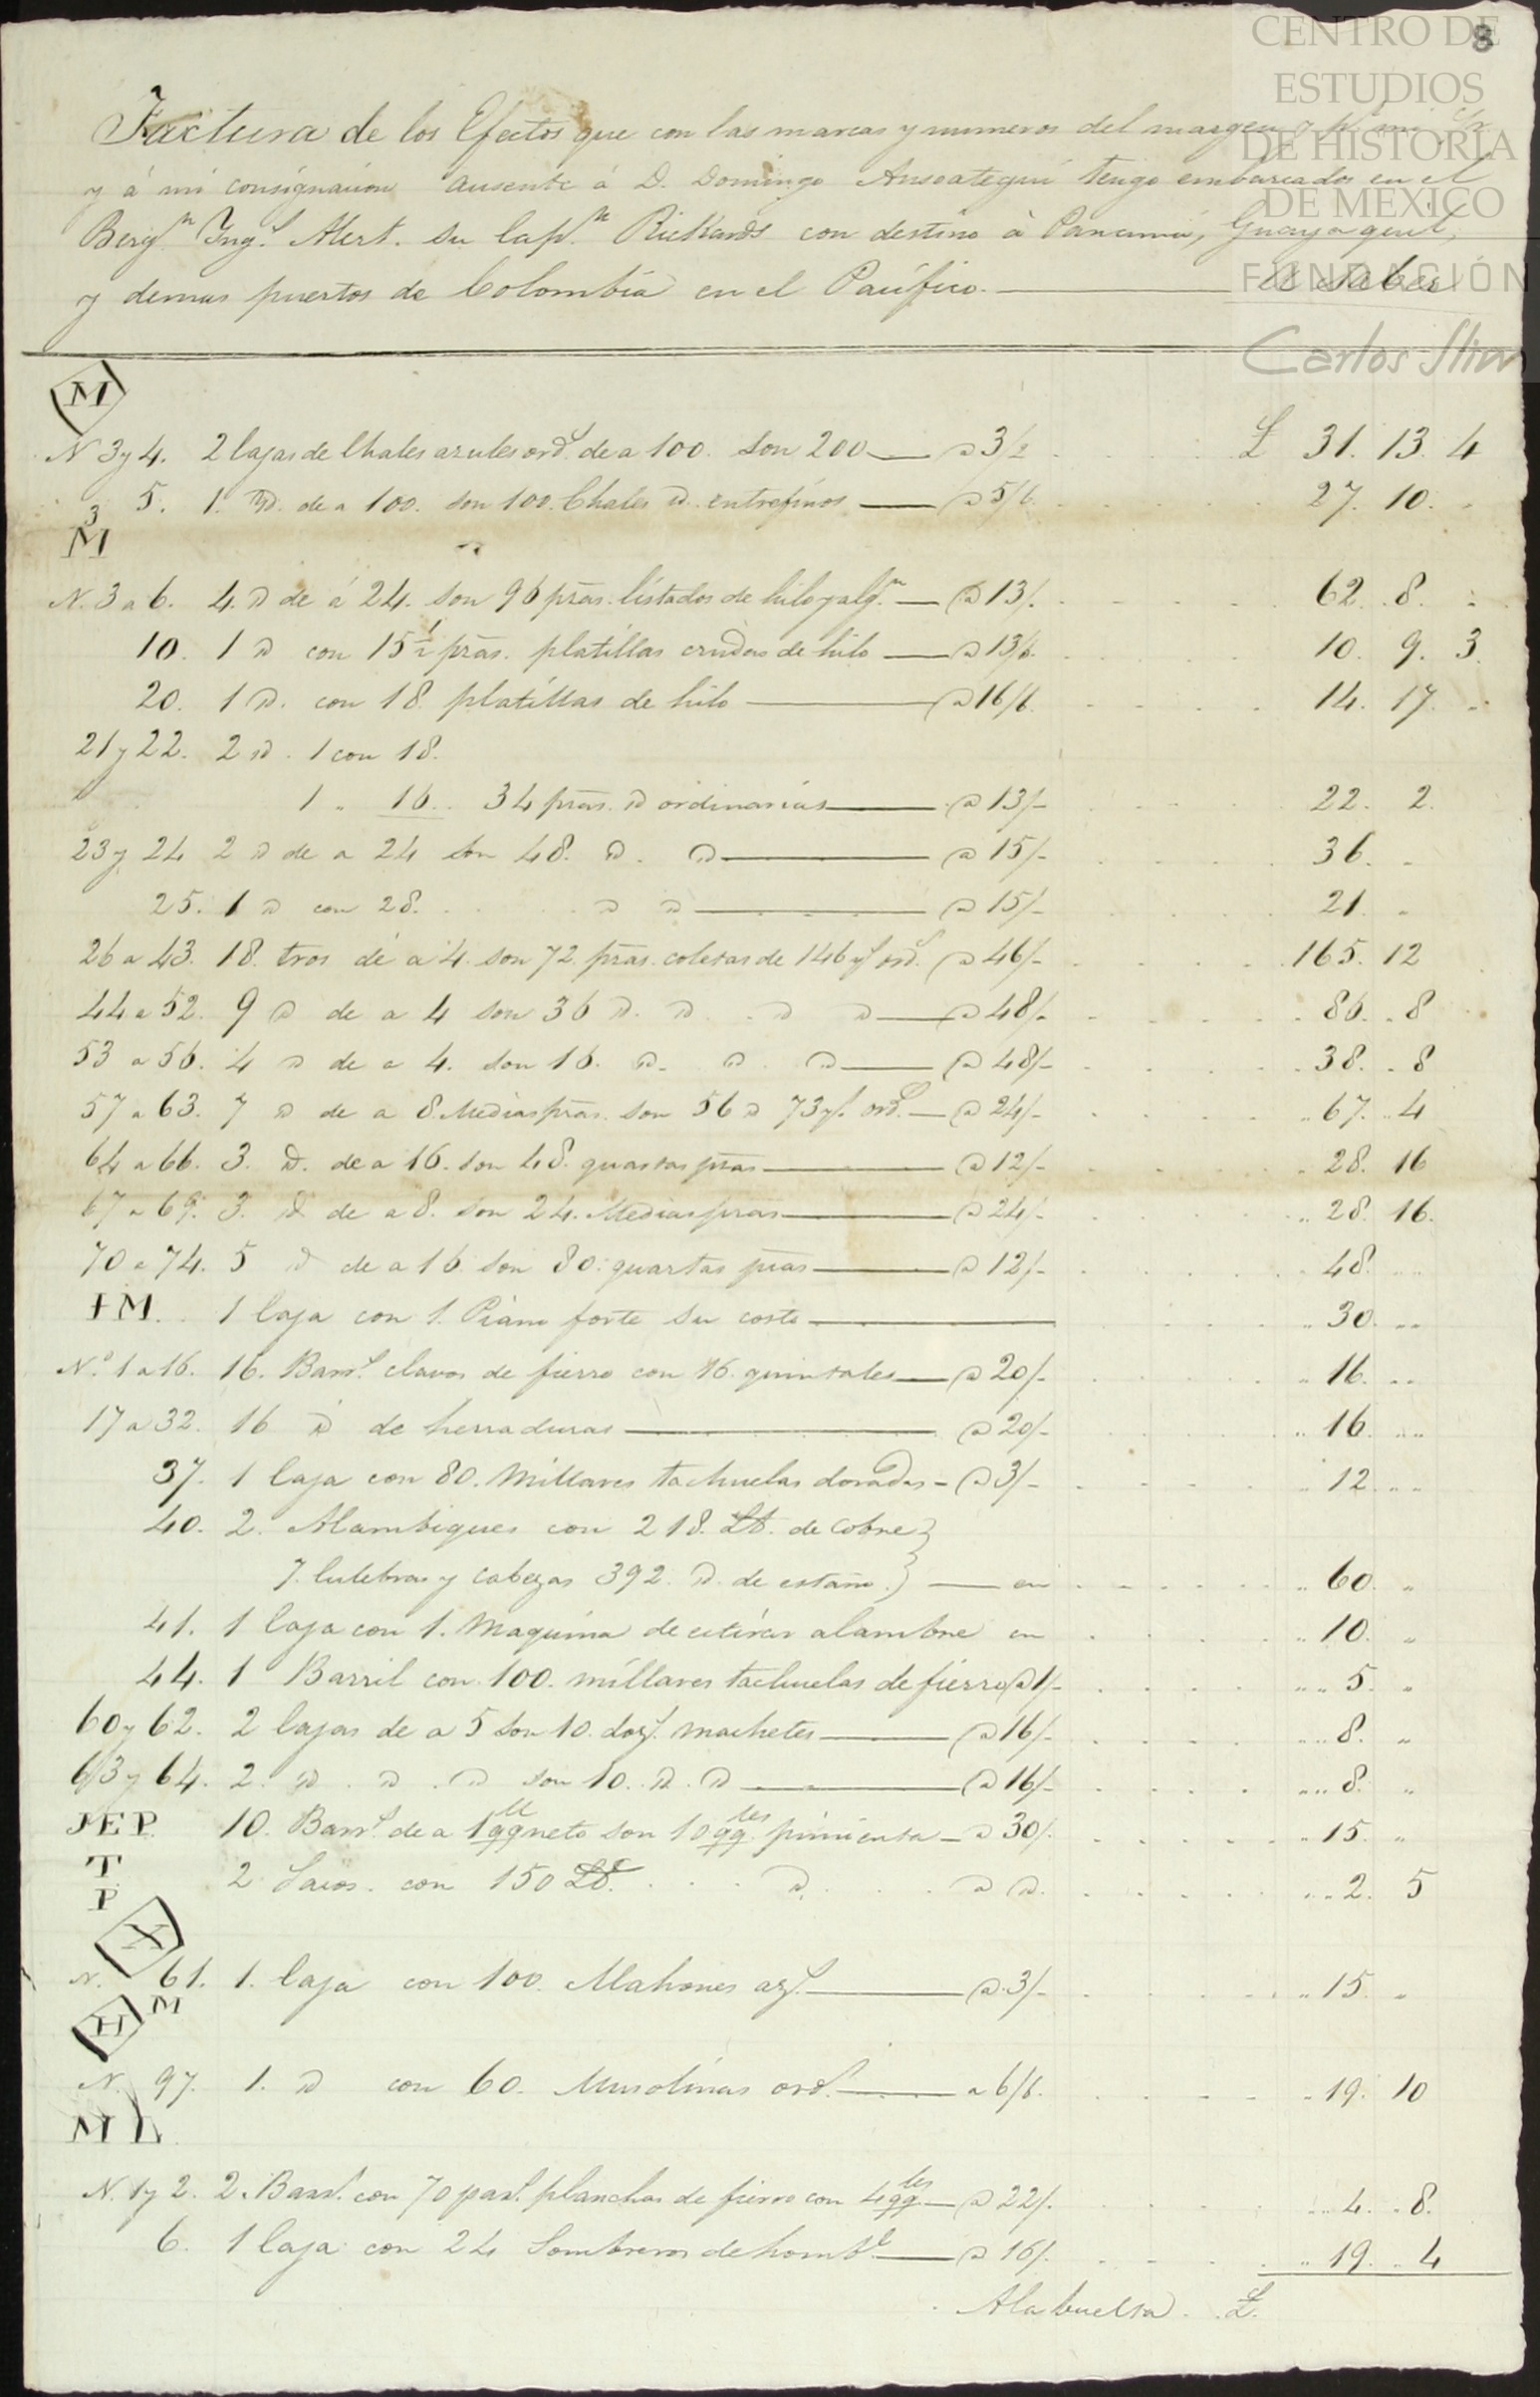 CENTRO DE
ESTUDIOS
DE HISTORIA
DE MEXICO
FUNDACIÓN
Carlos Slim
8
Factura de los Efectos que con las marcas y numeros del margen y
y á mi consignacion ausente á D. Domingo Ansoategui tengo embarcados en el
Bergn. Yngs. Alert. su Capn. Rickards con destino à Panamá, Guayaquil,
y demas puertos de Colombia en el Pacífico. — a saber
M
N 3 y 4. 2 Cajas de Chales azules ords. de a 100. son 200 — @ 3/2 £ 31. 13. 4
5. 1. D. de a 100. son 100. Chales D. entrefinos — @ 5/6. 27. 10.
3
M
N. 3 a 6. 4. D de á 24. son 96 pzas. listados de hilo y algn. — @ 13/. 62. 8.
10. 1 D con 15½ pzas. platillas crudas de hilo — @ 13/6. 10. 9. 3.
20. 1 D. con 18. platillas de hilo — @ 16/6. 14. 17.
21 y 22. 2 D. 1 con 18.
1 " 16. 34 pzas. D ordinarias — @ 13/- 22. 2.
23 y 24 2 D de a 24 son 48. D. D — @ 15/- 36.
25. 1 D con 28. D D — @ 15/- 21.
26 a 43. 18. tros de a 4. son 72. pzas. coletas de 146 ys ords. @ 46/- 165. 12
44 a 52. 9 D de a 4 son 36 D. D. D D — @ 48/- 86. 8
53 a 56. 4 D de a 4. son 16. D. D. D — @ 48/- 38. 8
57 a 63. 7 D de a 8. Medias pzas. son 56 D 73 ys. ords. — @ 24/- 67. 4
64 a 66. 3. D. de a 16. son 48. quartas pzas — @ 12/- 28. 16
67 a 69. 3. D de a 8. son 24. Medias pzas — @ 24/- 28. 16.
70 a 74. 5 D de a 16. son 80. quartas pzas — @ 12/- 48.
IM. 1 Caja con 1. Piano forte su costo — 30.
N.º 1 a 16. 16. Barrs. clavos de fierro con 16. quintales — @ 20/- 16.
17 a 32. 16 D de herraduras — @ 20/- 16.
37. 1 Caja con 80. Millares tachuelas doradas - @ 3/- 12.
40. 2. Alambiques con 218. Lb. de cobre }
7. Culebras y cabezas 392. D. de estaño. } — en 60.
41. 1 Caja con 1. Maquina de estirar alambre en 10.
44. 1 Barril con 100. millares tachuelas de fierro @ 1/- 5.
60 y 62. 2 Cajas de a 5 son 10. dozs. machetes — @ 16/- 8.
63 y 64. 2. D. D. D son 10. D. D — @ 16/- 8.
JEP. 10. Barrs. de a 1 qql neto son 10 qqles. pimienta — @ 30/. 15.
T
P
2 Sacos. con 150 Lb. D. a D. 2. 5
X
N. 61. 1. Caja con 100. Mahones azs. — @ 3/- 15.
H M
N. 97. 1. D con 60. Musolinas ords. — a 6/6. 19. 10
M L
N. 1 y 2. 2. Barrs. con 70 pars. planchas de fierro con 4 qqles — @ 22/. 4. 8.
6. 1 Caja con 24 Sombreros de hombe — @ 16/. 19. 4
A la buelta. £.